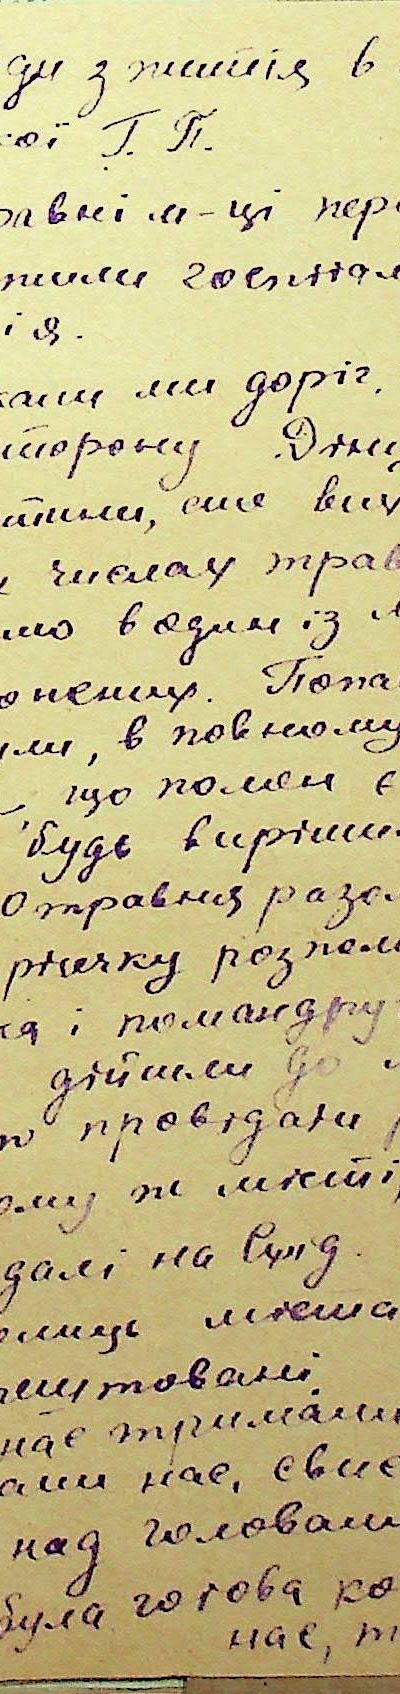 ди з життя в
кої Г. П.
равні м-ці пер
жили госпітал
ія.
кали ми доріг,
сторону Дні
итини, але вих
х числах трав
мо в один із м
онених. Попа
или, в повному
що полон є
будь виріши
0 травня разом
річечку розпол
ка і помандру
дійшли до м
то провідати
ому ж місті,
далі на Схід.
олиць міста
рештовані
нас тримали
али нас, свис
над головами
була готова ко
нас, т